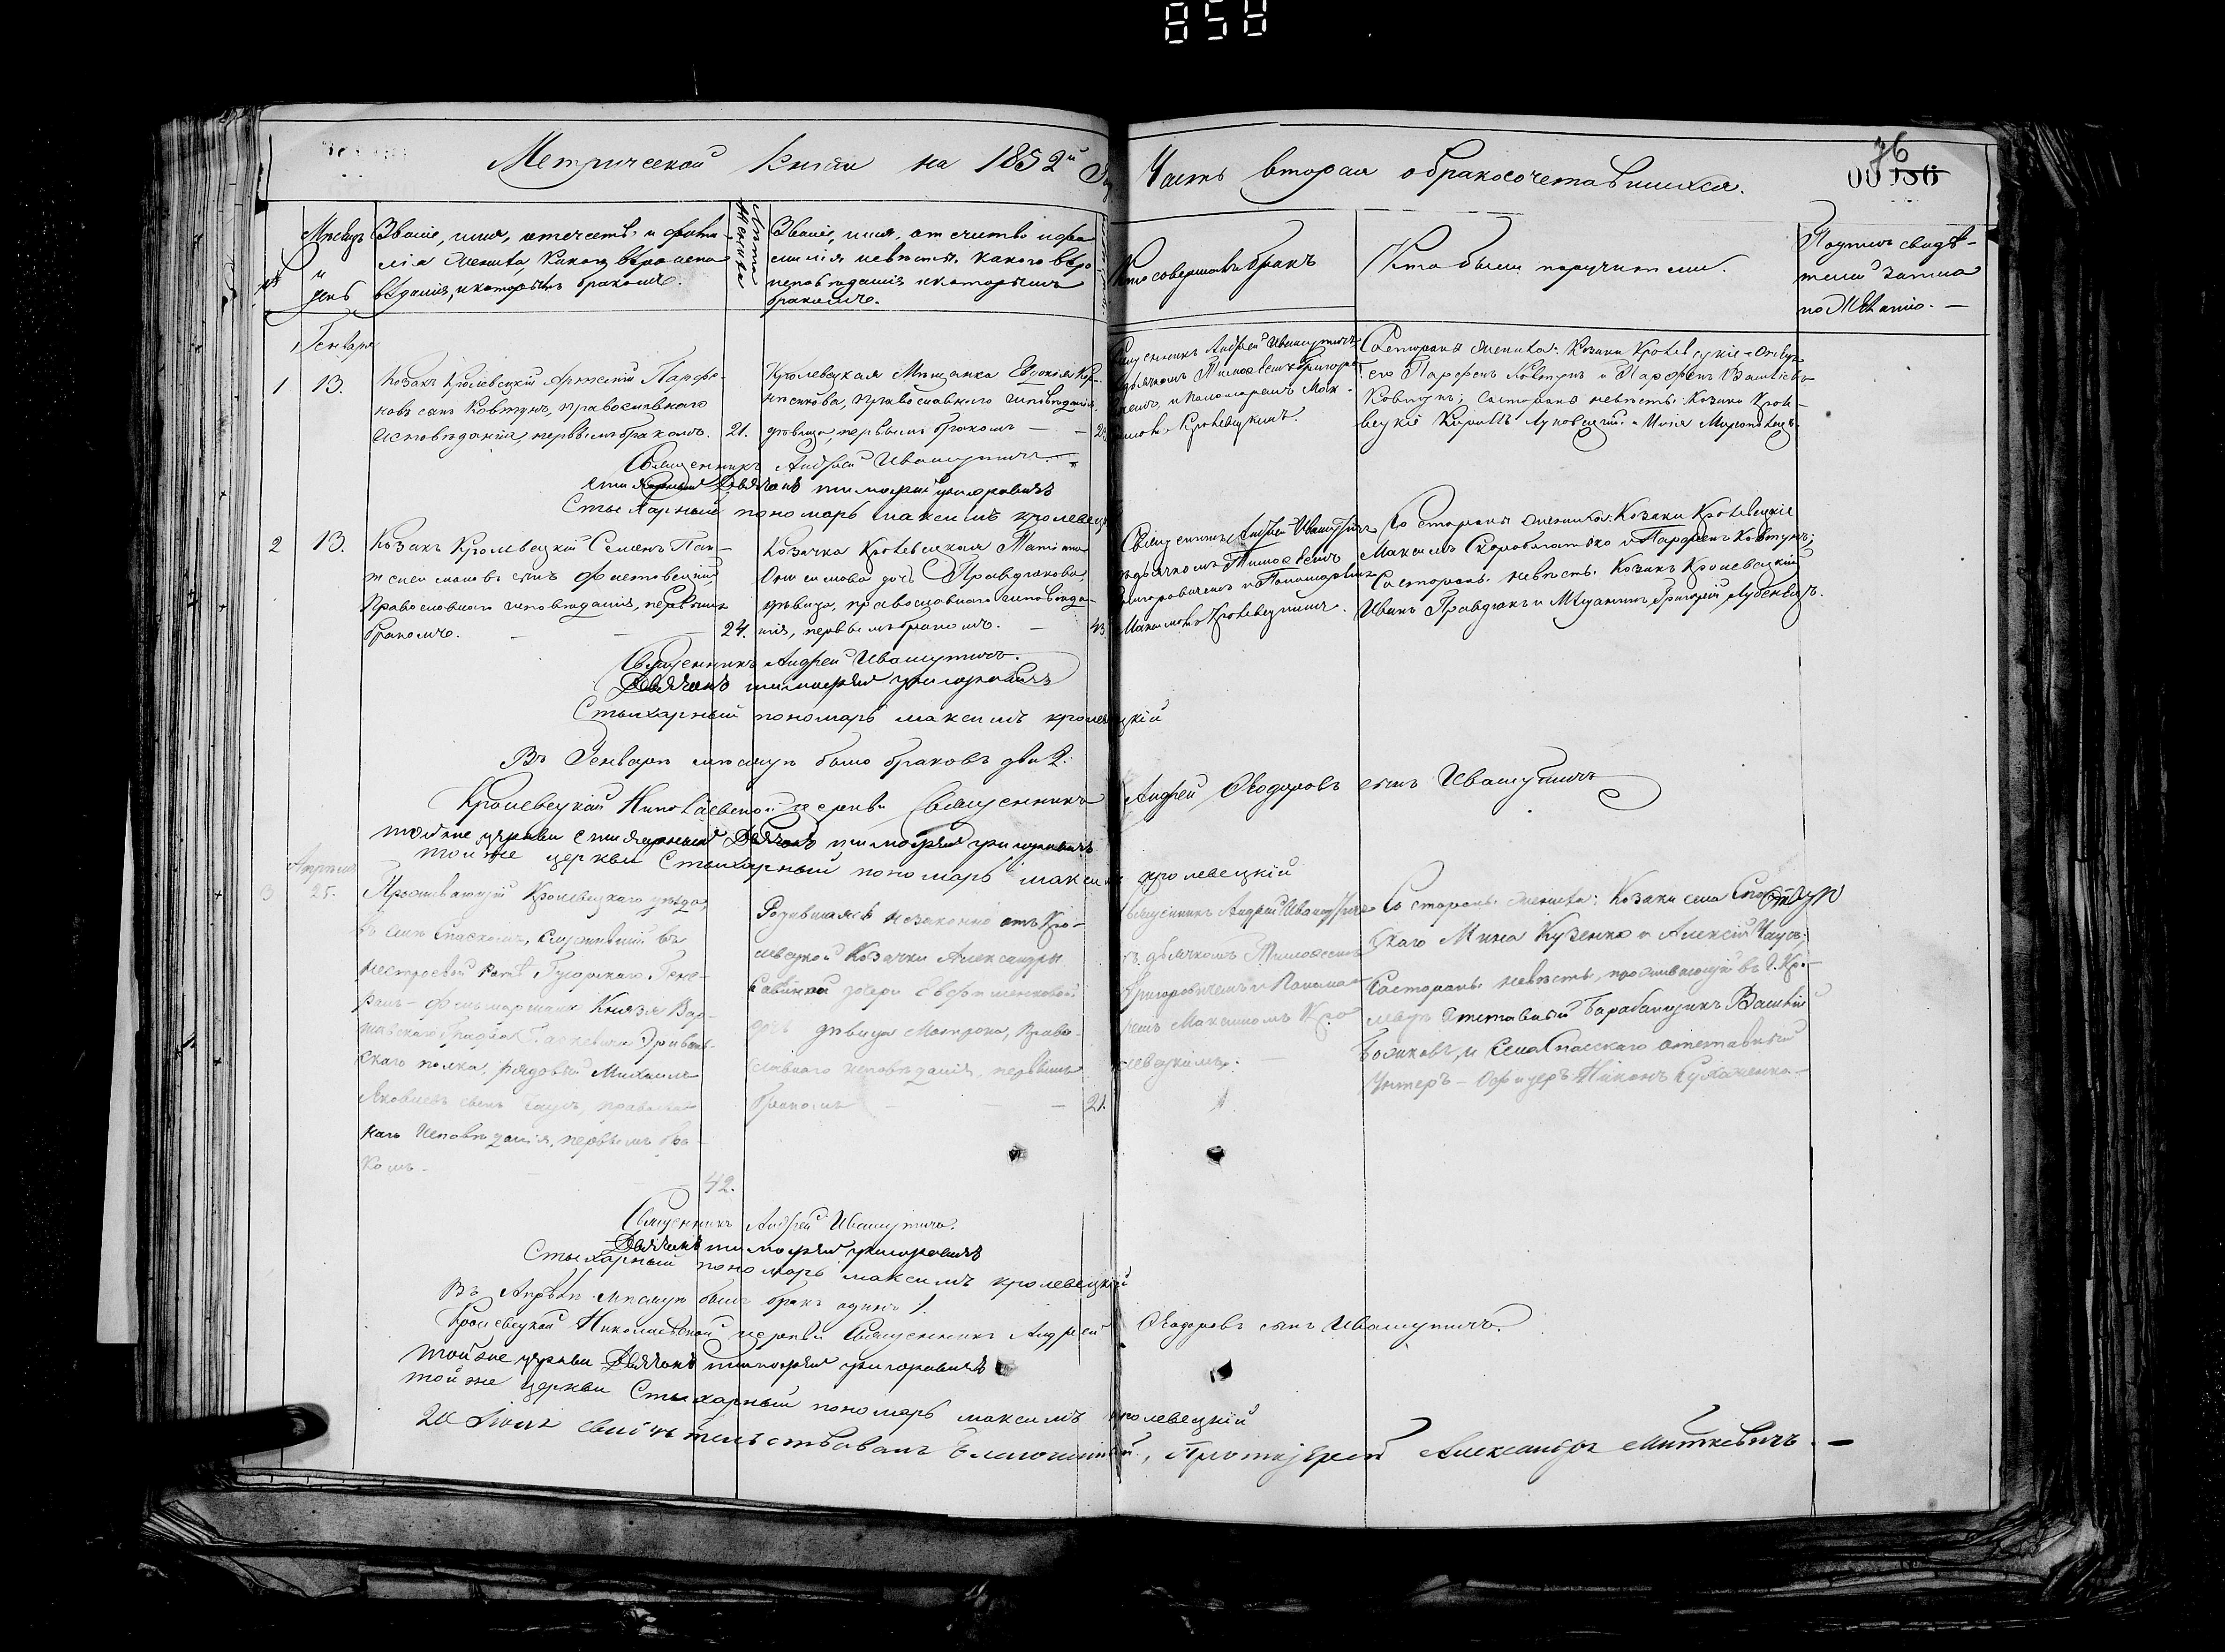 858
Метрической книги на 1852й
Часть вторая о бракосочетавшихся.
76
00136
Мѣсяцъ и день
Званіе, имя, отечеств. и фами-
лія жениха, какого вѣроиспо-
вѣданія, и которымъ бракомъ.
Лѣта жениха
Званіе, имя, отечество и фа-
милія невѣсты, какого вѣро
исповѣданія и которымъ
бракомъ.
Кто совершалъ бракъ
Кто были поручители.
Подпись свидѣ-
телей записи
по желанію. —
Генварь
1 13.
Козакъ Кролевецкій Артемій Парфе-
новъ сынъ Ковтунъ, православнаго
исповѣданія, первымъ бракомъ. 21.
Кролевецкая Мѣщанка Евдокія Кор-
православнаго исповѣданія,
дѣвица, первымъ бракомъ — —
Священникъ Андрей Ивашутичъ
съ дьячкомъ Тимофеемъ Григоро-
вичемъ, и пономаремъ Мак-
симомъ Кролевецкимъ.
Со стороны жениха: Козаки Кролевецкіе Отецъ
его Парфенъ Ковтунъ и Парфенъ Василіевъ
Ковтунъ; со стороны невѣсты: Козаки Кроле-
вецкіе
Священникъ Андрей Ивашутичъ.
Дьячокъ тимофей григоровичъ
Стыхарный пономарь максимъ кролевецкій
2 13.
Козакъ Кролевецкій Семенъ Пан-
телеимоновъ сынъ
Православнаго исповѣданія, первымъ
бракомъ. — — 24.
Козачка Кролевецкая
дочь Правдюкова,
дѣвица, православнаго исповѣда-
нія, первымъ бракомъ. —
Священникъ Андрей Ивашутичъ
съ дьячкомъ Тимофеемъ
Григоровичемъ и Пономаремъ
Максимомъ Кролевецкимъ.
Со стороны жениха: Козаки Кролевецкіе
Максимъ Скоробагатько и Парфенъ Ковтунъ;
Со стороны невѣсты: Козакъ Кролевецкій
Иванъ Правдюкъ и Мѣщанинъ Григорій
Священникъ Андрей Ивашутичъ.
Дьячокъ тимофей григоровичъ
Стыхарный пономарь максимъ кролевецкій
Въ Генварѣ мѣсяцѣ было браковъ два 2.
Кролевецкой Николаевской церкви Священникъ Андрей Феодоровъ сынъ Ивашутичъ
той же церкви стихарный Дьячокъ тимофей григоровичъ
той же церкви Стыхарный пономарь максимъ кролевецкій
Апрель
3 25.
Проживающій Кролевецкаго уѣзда,
въ селѣ Спаскомъ, служившій въ
Гене-
ралъ-фельдмаршала Князя Вар-
шавскаго Графа Паскевича Эриван-
скаго полка, рядовый Михаилъ
Яковлевъ сынъ Чаусъ, православ-
наго исповѣданія, первымъ бра-
комъ. 42.
Родившаяся незаконно отъ Кро-
левецкой Козачки Александры
дочери
дочь дѣвица Матрона, право-
славнаго исповѣданія, первымъ
бракомъ — — 21.
Священникъ Андрей Ивашутичъ
съ дьячкомъ Тимофеемъ
Григоровичемъ и Понома-
ремъ Максимомъ Кро-
левецкимъ. —
Со стороны жениха: Козаки села
Мина Кузенко и Алексій Чаусъ;
Со стороны невѣсты, проживающій въ Г. Кро-
левцѣ Отставный Барабанщикъ Василій
и села Спасскаго отставный
Унтеръ-Офицеръ Никонъ
Священникъ Андрей Ивашутичъ.
Дьячокъ тимофей григоровичъ
Стыхарный пономарь максимъ кролевецкій
Въ Апрѣлѣ мѣсяцѣ былъ бракъ одинъ 1.
Кролевецкой Николаевской церкви Священникъ Андрей Феодоровъ сынъ Ивашутичъ.
той же церкви Дьячокъ тимофей григоровичъ
той же церкви Стыхарный пономарь максимъ кролевецкій
20 Іюня свидѣтельствовалъ Благочинный, Протоіерей Александръ Миткевичъ. —